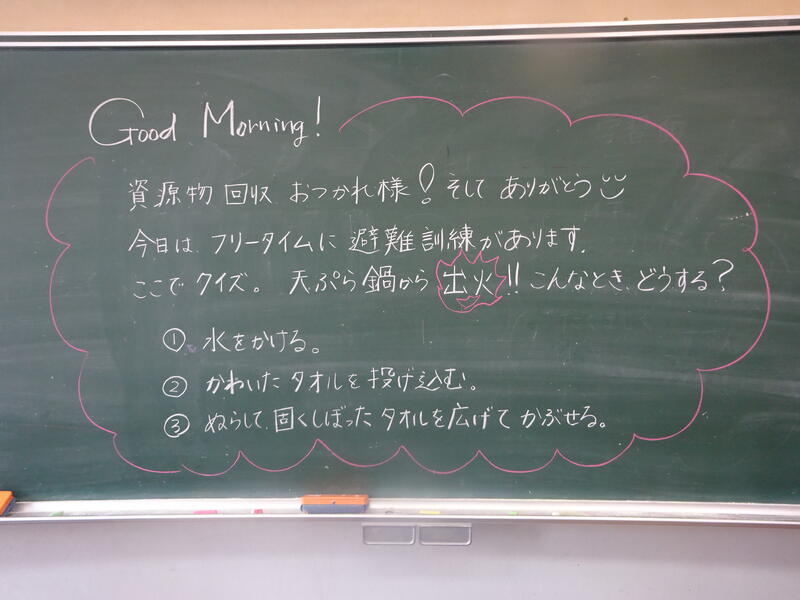 Good Morning!
資源物回収 おつかれ様! そして ありがとう
今日は、フリータイムに 避難訓練があります。
ここで クイズ。 天ぷら鍋から 出火!! こんなとき、どうする?
① 水をかける。
② かわいた タオルを 投げ込む。
③ ぬらして、固くしぼった タオルを 広げて かぶせる。